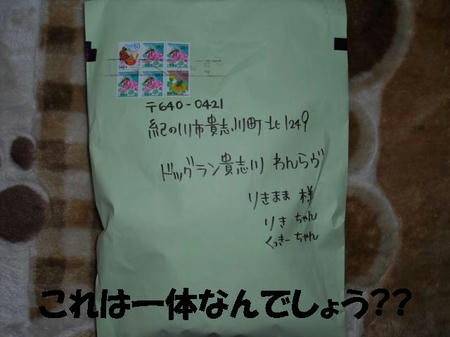 〒640-0421
紀の川市貴志川町北1249
ドッグラン貴志川 わんらヴ
りきまま 様
りき ちゃん
くっきー ちゃん
これは一体なんでしょう??